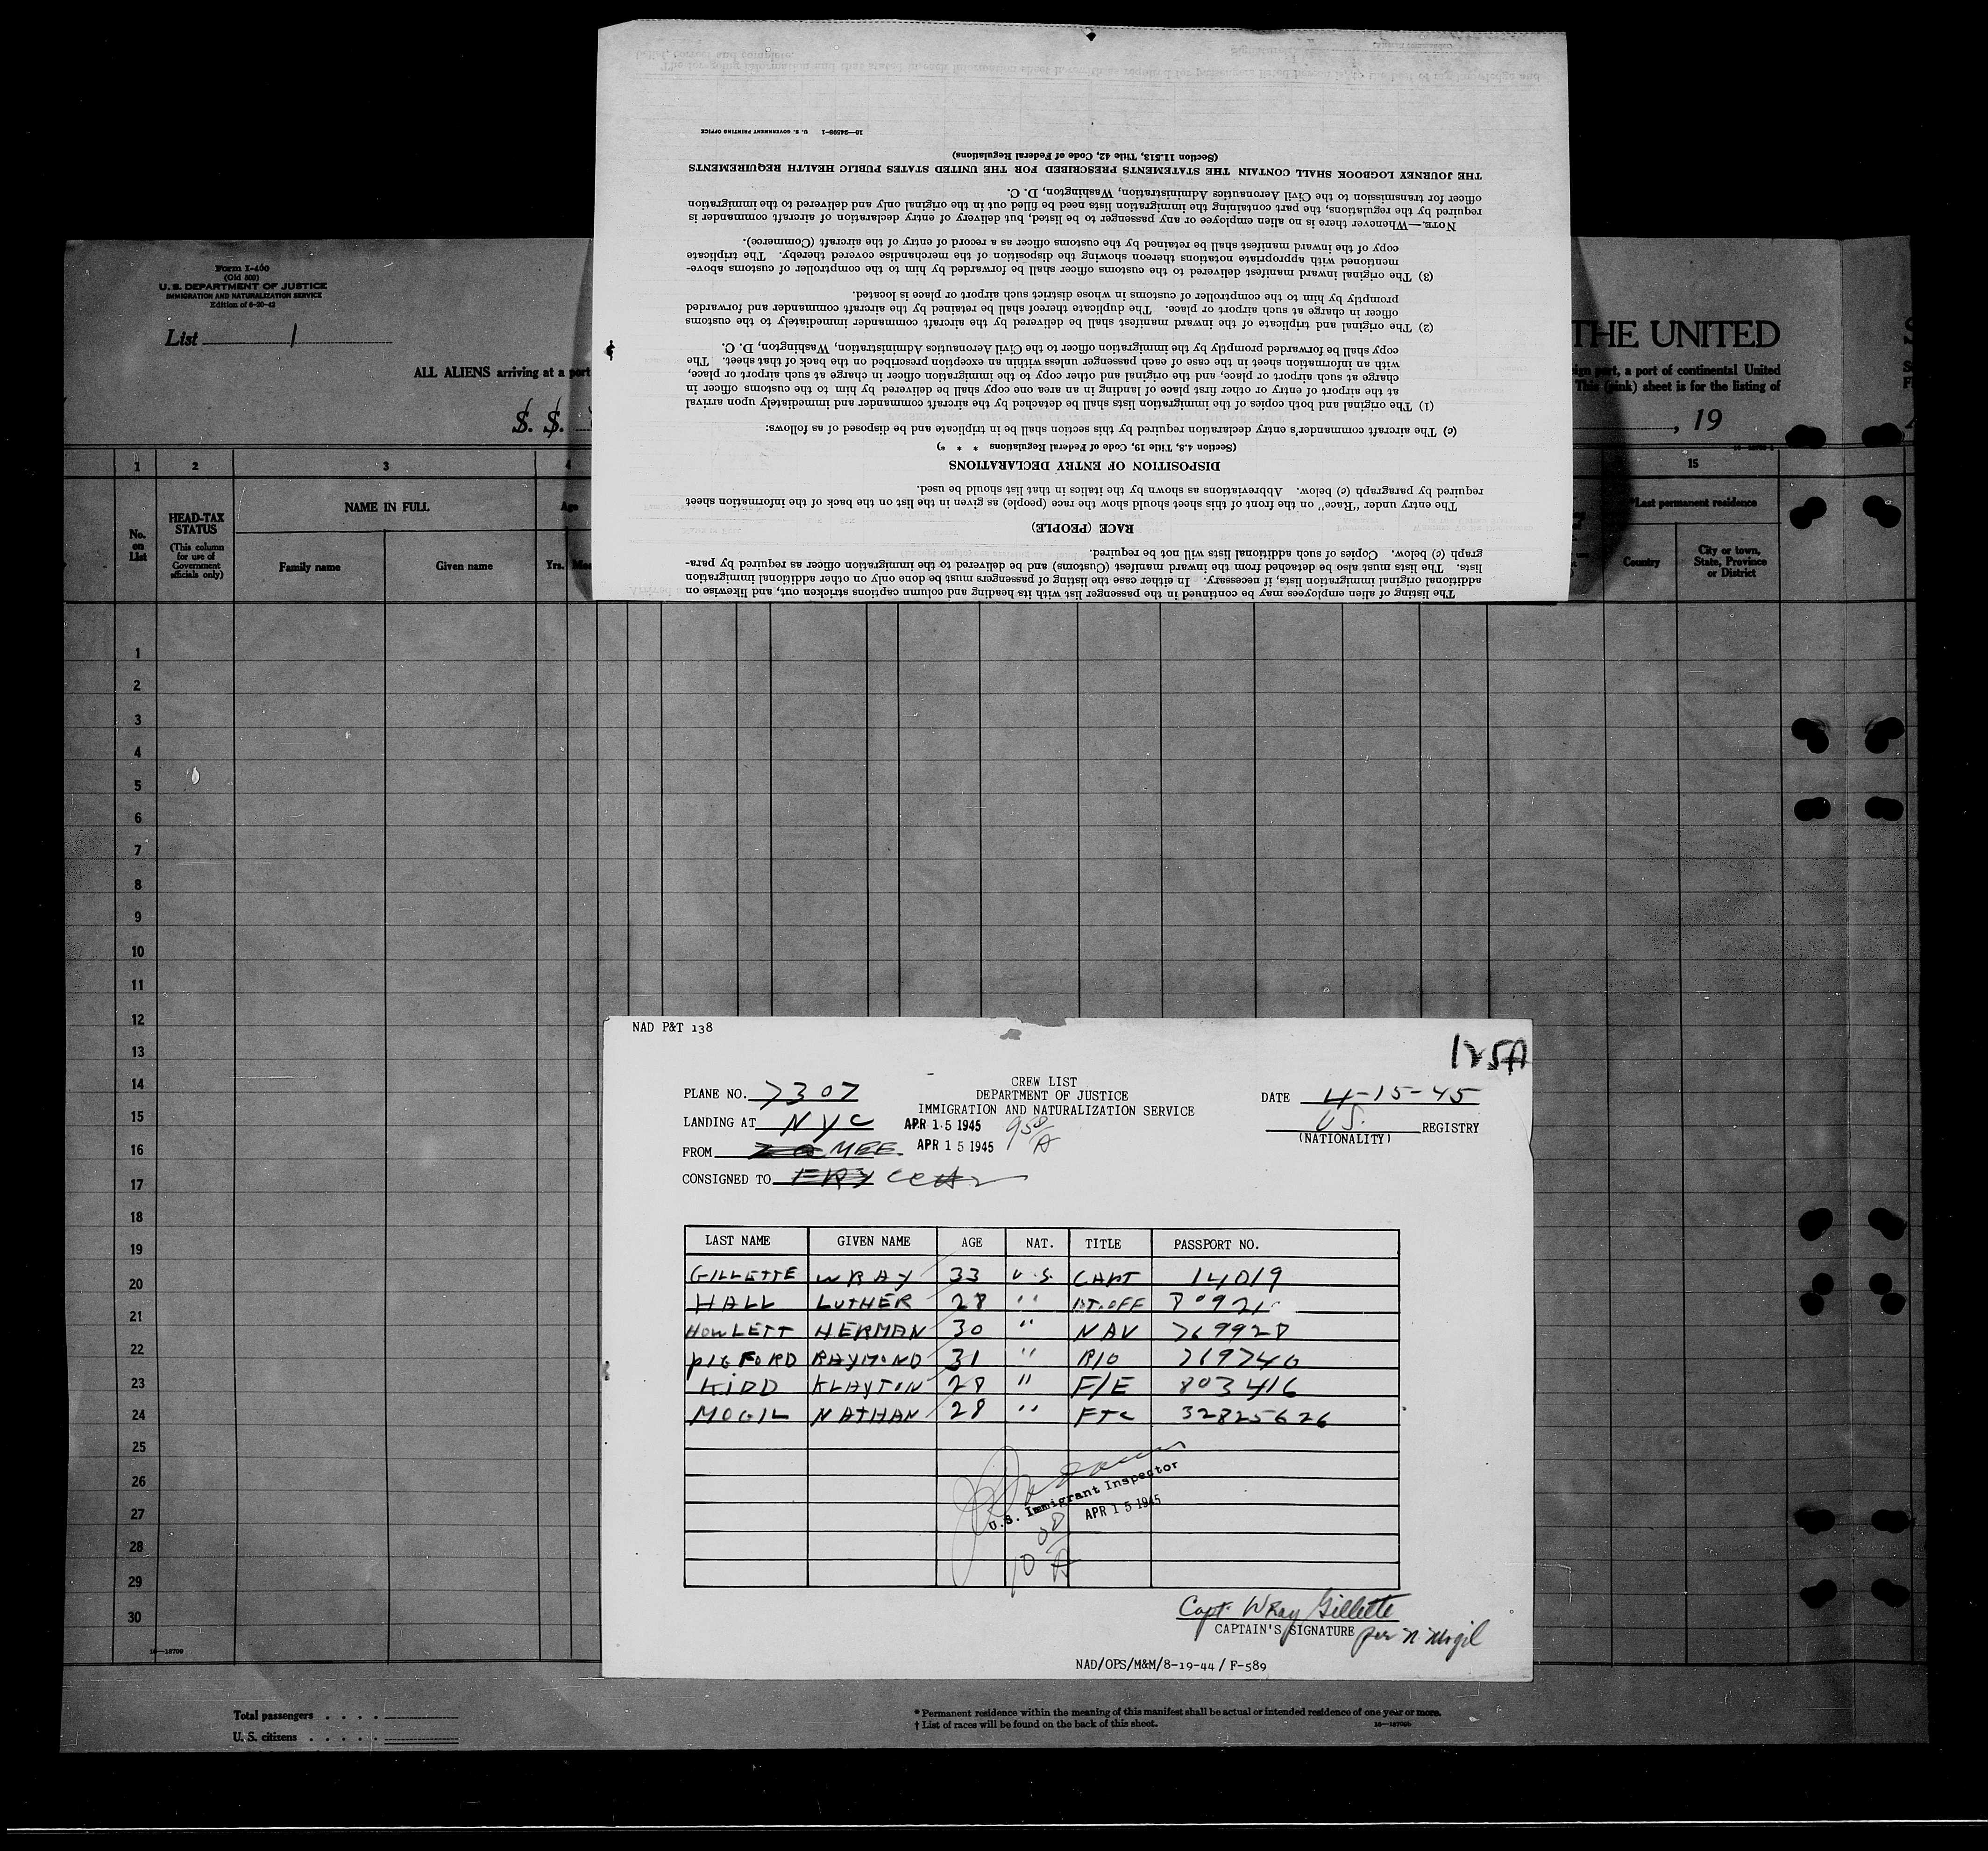 CONCORD FACTORY
Signature
belief, correct and complete.
The foregoing information and that stated in each information sheet herewith as required for passengers listed hereon is, to the best of my knowledge and
The listing of alien employees may be continued in the passenger list with its heading and column captions stricken out, and likewise on
additional original immigration lists, if necessary. In either case the listing of passengers must be done only on other additional immigration
lists. The lists must also be detached from the inward manifest (Customs) and be delivered to the immigration officer as required by para-
graph (c) below. Copies of such additional lists will not be required.
RACE (PEOPLE)
The entry under "Race" on the front of this sheet should show the race (people) as given in the list on the back of the information sheet
required by paragraph (c) below. Abbreviations as shown by the italics in that list should be used.
DISPOSITION OF ENTRY DECLARATIONS
(Section 4.8, Title 19, Code of Federal Regulations * * *)
(c) The aircraft commander's entry declaration required by this section shall be in triplicate and be disposed of as follows:
(1) The original and both copies of the immigration lists shall be detached by the aircraft commander and immediately upon arrival
at the airport of entry or other first place of landing in an area one copy shall be delivered by him to the customs officer in
charge at such airport or place, and the original and other copy to the immigration officer in charge at such airport or place,
with an information sheet in the case of each passenger unless within an exception prescribed on the back of that sheet. The
copy shall be forwarded promptly by the immigration officer to the Civil Aeronautics Administration, Washington, D. C.
(2) The original and triplicate of the inward manifest shall be delivered by the aircraft commander immediately to the customs
officer in charge at such airport or place. The duplicate thereof shall be retained by the aircraft commander and forwarded
promptly by him to the comptroller of customs in whose district such airport or place is located.
(3) The original inward manifest delivered to the customs officer shall be forwarded by him to the comptroller of customs above-
mentioned with appropriate notations thereon showing the disposition of the merchandise covered thereby. The triplicate
copy of the inward manifest shall be retained by the customs officer as a record of entry of the aircraft (Commerce).
NOTE.—Whenever there is no alien employee or any passenger to be listed, but delivery of entry declaration of aircraft commander is
required by the regulations, the part containing the immigration lists need be filled out in the original only and delivered to the immigration
officer for transmission to the Civil Aeronautics Administration, Washington, D. C.
THE JOURNEY LOGBOOK SHALL CONTAIN THE STATEMENTS PRESCRIBED FOR THE UNITED STATES PUBLIC HEALTH REQUIREMENTS
(Section 11.513, Title 42, Code of Federal Regulations)
16—24599-1 U. S. GOVERNMENT PRINTING OFFICE
Form I-460
(Old 500)
U. S. DEPARTMENT OF JUSTICE
IMMIGRATION AND NATURALIZATION SERVICE
Edition of 6-20-42
List 1
ALL ALIENS arriving at a port
S. S.
THE UNITED
sign port, a port of continental United
This (pink) sheet is for the listing of
, 19
1 2 3 4 15
No. on List
HEAD-TAX STATUS
(This column for use of Government officials only)
NAME IN FULL
Family name Given name
Age
Yrs. Mos
*Last permanent residence
Country
City or town, State, Province or District
1
2
3
4
5
6
7
8
9
10
11
12
13
14
15
16
17
18
19
20
21
22
23
24
25
26
27
28
29
30
16—18709
NAD P&T 138
125A
CREW LIST
DEPARTMENT OF JUSTICE
IMMIGRATION AND NATURALIZATION SERVICE
PLANE NO. 7307
DATE 4-15-45
LANDING AT NYC
APR 15 1945
U.S. REGISTRY
(NATIONALITY)
FROM MEE.
APR 15 1945
958/A
CONSIGNED TO
LAST NAME GIVEN NAME AGE NAT. TITLE PASSPORT NO.
GILLETTE WRAY 33 U.S. CAPT 14019
HALL LUTHER 28 " 1ST.OFF 80921
HOWLETT HERMAN 30 " NAV 769928
PIGFORD RAYMOND 31 " R/O 769740
KIDD KLAYTON 28 " F/E 803416
MOGIL NATHAN 28 " FTC 32825626
U.S. Immigrant Inspector
APR 15 1945
10 08/A
Capt. Wray Gillette
CAPTAIN'S SIGNATURE per N. Mogil
NAD/OPS/M&M/8-19-44/ F-589
Total passengers . . . .
U. S. citizens . . . . .
* Permanent residence within the meaning of this manifest shall be actual or intended residence of one year or more.
† List of races will be found on the back of this sheet.
16—18709b